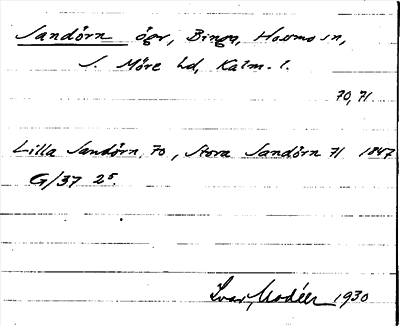 Sandörn ögr, Binga, Hossmo sn,
S. Möre hd, Kalm. l.
70, 71
Lilla Sandörn 70, Stora Sandörn 71 1847
G/37 25.
Ivar Modéer 1930